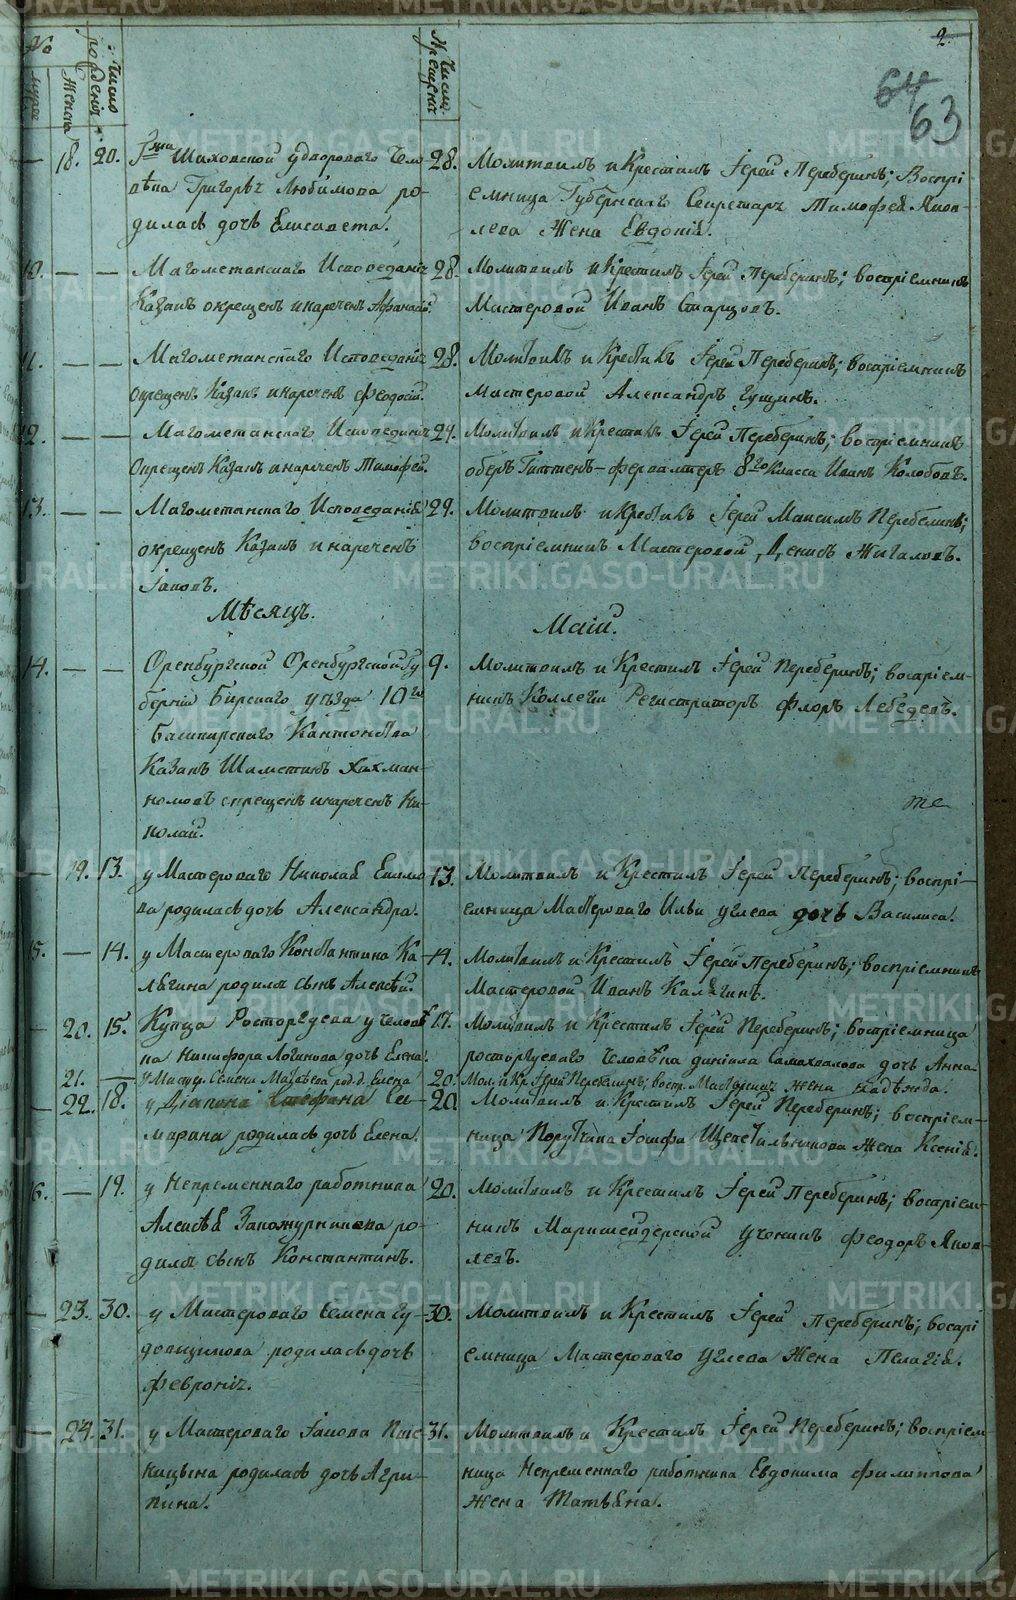 2.
64
63
№
мужск
Женска
Число рожденiя
Число Крещенiя
18. 20. Г-жи Шаховской у двороваго Чело-
вѣка Григорья Любимова ро-
дилась дочь Елисавета.
28. Молитвилъ и Крестилъ Iерей Переберинъ; Воспрi
емница Губернскаго Секретаря Тимофея Яков-
лева Жена Евдокiя.
10. — — Магометанскаго Исповеданiя
Казакъ окрещенъ и нареченъ Афанасiй.
28. Молитвилъ и Крестилъ Iерей Переберинъ; воспрiемникъ
Мастеровой Иванъ Старцовъ.
11. — — Магометанскаго Исповеданiя
окрещенъ Казакъ и нареченъ Феодосiй.
28. Молитвилъ и Крестилъ Iерей Переберинъ; воспрiемникъ
Мастеровой Александръ Гущинъ.
12. — — Магометанскаго Исповеданiя
окрещенъ Казакъ и нареченъ Тимофей.
24. Молитвилъ и Крестилъ Iерей Переберинъ; воспрiемникъ
оберъ Гиттенъ-фервалтеръ 8го Класса Иванъ Колобовъ.
13. — — Магометанскаго Исповеданiя
окрещенъ Казакъ и нареченъ
Iаковъ.
29. Молитвилъ и Крестилъ Iерей Максимъ Переберинъ;
воспрiемникъ Мастеровой Денисъ Жигаловъ.
Мѣсяцъ.
Маiй.
14. — — Оренбургской Оренбургской Гу
бернiи Бирскаго уѣзда 10го
Башкирскаго Кантонства
Казакъ Шаметинъ Хахман-
номовъ окрещенъ и нареченъ Ни-
колай.
9. Молитвилъ и Крестилъ Iерей Переберинъ; воспрiем-
никъ Коллегiи Регистраторъ Флоръ Лебедевъ.
те
— 19. 13. у Мастероваго Николая Екимо
ва родилась дочь Александра.
13. Молитвилъ и Крестилъ Iерей Переберинъ; воспрi-
емница Мастероваго Ильи Углева дочь Василиса.
15. — 14. у Мастероваго Константина Ка-
лягина родился сынъ Алексѣй.
14. Молитвилъ и Крестилъ Iерей Переберинъ; воспрiемникъ
Мастеровой Иванъ Калягинъ.
20. 15. Купца Расторгуева у человѣ
ка Никифора Логинова дочь Елена.
17. Молитвилъ и Крестилъ Iерей Переберинъ; воспрiемница
расторгуеваго Человѣка данiила Самахвалова дочь Анна
21. — у Мастер. Семена Матвѣева род. д. Елена
20. Мол. и Кр. Iерей Переберинъ; воспр. жена Надежда.
22. 18. у Дiакона Стефана Са-
марина родилась дочь Елена.
20. Молитвилъ и Крестилъ Iерей Переберинъ; воспрiем-
ница Порутчика Iосифа Щепетильникова Жена Ксенiя.
16. — 19. у Непременнаго работника
Алексѣя Закожурникова ро-
дился сынъ Константинъ.
20. Молитвилъ и Крестилъ Iерей Переберинъ; воспрiем-
никъ Маркшейдерской Ученикъ Феодоръ Яков-
левъ.
— 23. 30. у Мастероваго Семена Гу-
довщикова родилась дочь
Феврония.
30. Молитвилъ и Крестилъ Iерей Переберинъ; воспрi
емница Мастероваго Углева Жена Пелагiя.
— 24. 31. у Мастероваго Iакова Пше-
ницына родилась дочь Агри-
пина.
31. Молитвилъ и Крестилъ Iерей Переберинъ; воспрiем
ница Непременнаго работника Евдокима Филиппова
жена Татьяна.
METRIKI.GASO-URAL.RU